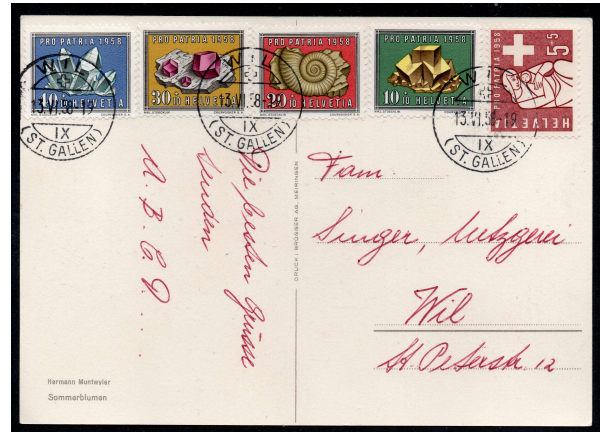 PRO PATRIA 1958
40 10 HELVETIA
PRO PATRIA 1958
30 10 HELVETIA
PRO PATRIA 1958
20 10 HELVETIA
PRO PATRIA 1958
10 10 HELVETIA
5+5
PRO PATRIA 1958
HELVETIA
WIL
13.VI.58-19
IX
(ST. GALLEN)
WIL
13.VI.58-19
IX
(ST. GALLEN)
WIL
13.VI.58-19
IX
(ST. GALLEN)
Die besten Grüsse
senden
M. B. C. D. ...
DRUCK: BRÜGGER AG, MEIRINGEN
Fam.
Singer, Metzgerei
Wil
St. Peterstr. 12
Hermann Muntwyler
Sommerblumen